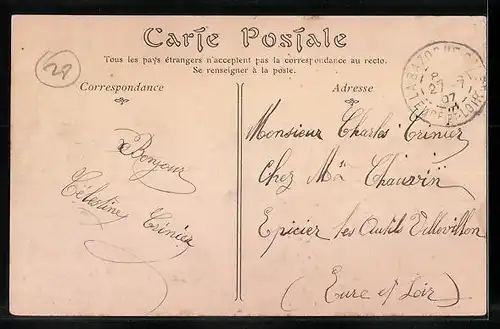 Carte Postale
Tous les pays étrangers n'acceptent pas la correspondance au recto.
Se renseigner à la poste.
28
Correspondance
Adresse
LA BAZOCHE
27 -7
07
EURE-ET-LOIR
Bonjour
Célestine
Monsieur Charles
Chez Mr
Epicier les
(Eure et Loir)